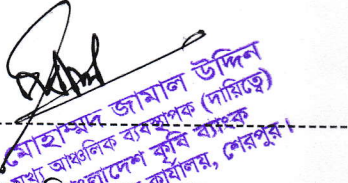 মোহাম্মদ জামাল উদ্দিন
মুখ্য আঞ্চলিক ব্যবস্থাপক (দায়িত্বে)
বাংলাদেশ কৃষি ব্যাংক
কার্যালয়, শেরপুর।